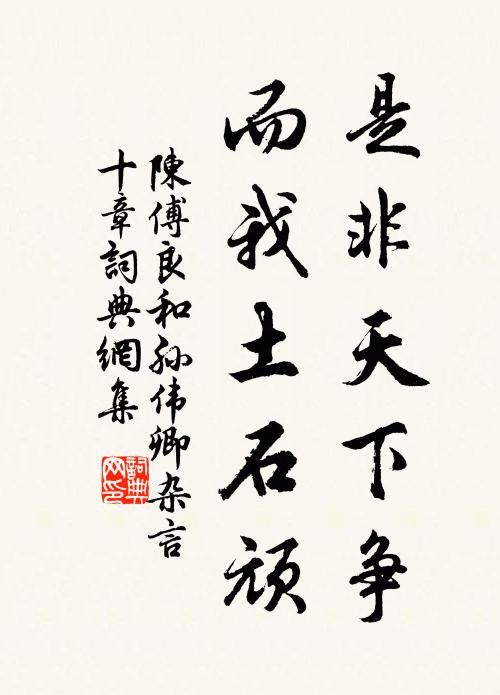 是非天下争
而我土石顽
陳傅良和孙伟卿杂言
十章詞典網集
詞典网印